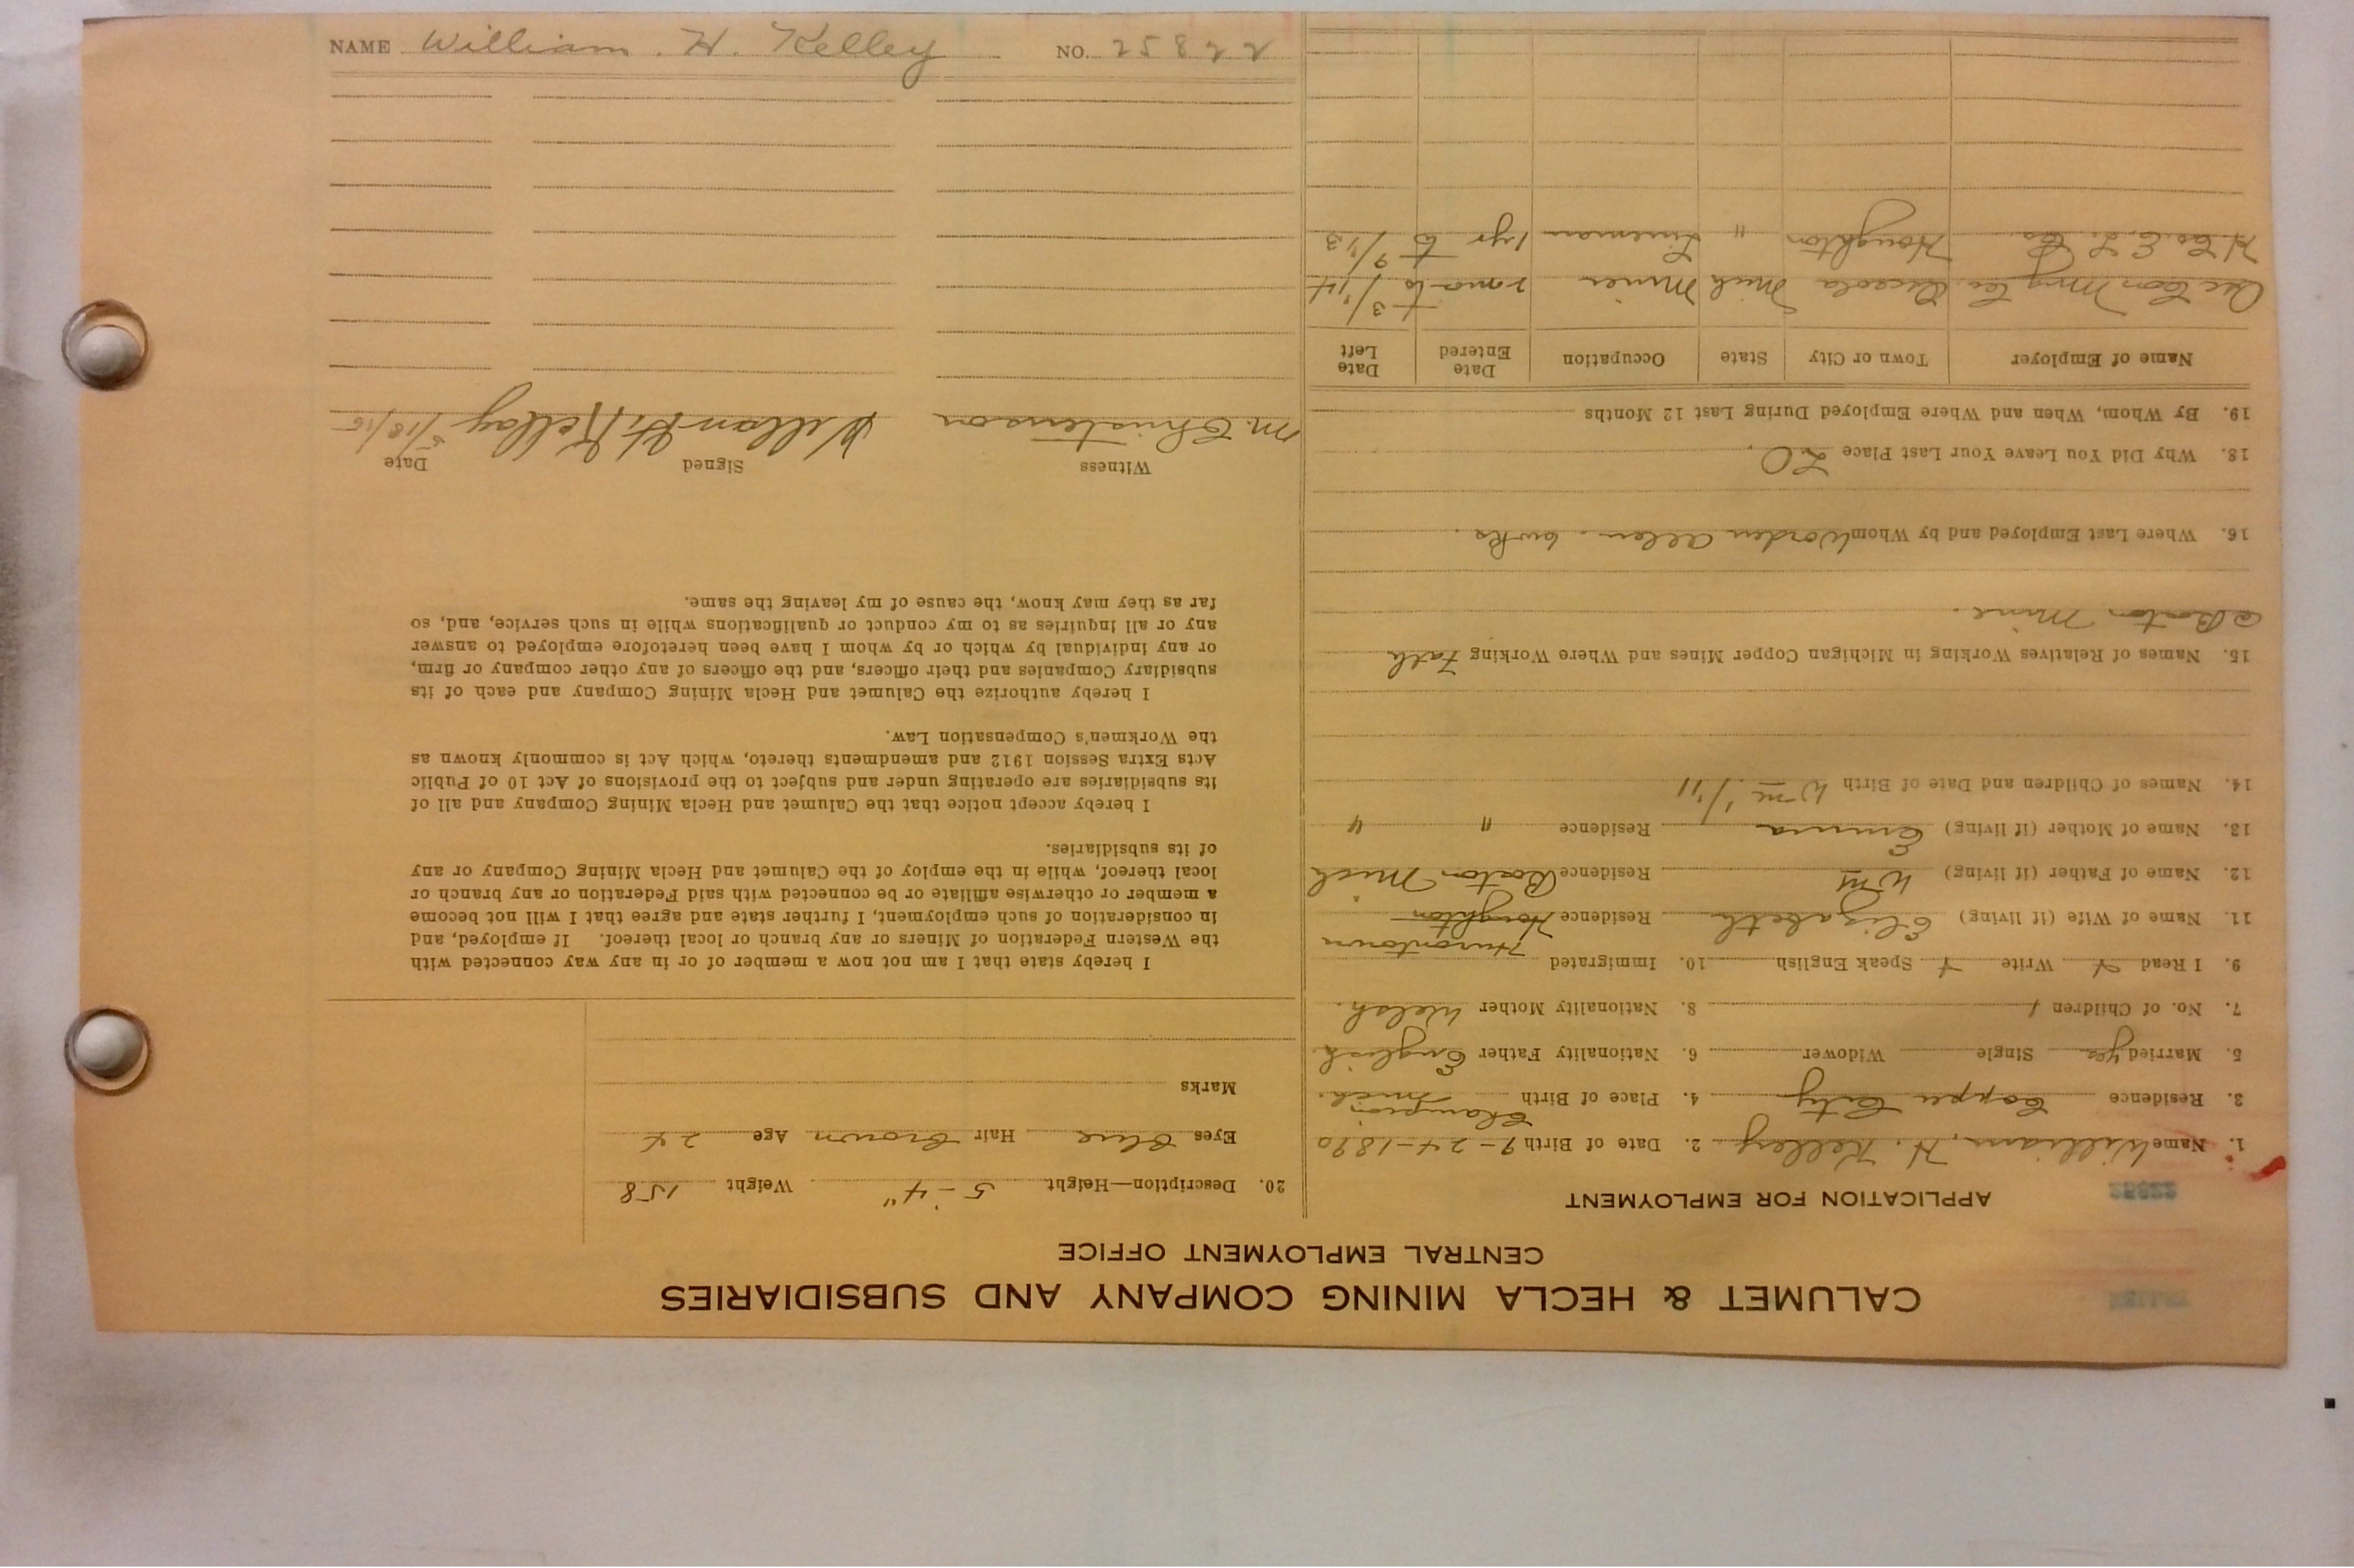 NAME William. H. Kelley NO. 25822
CALUMET & HECLA MINING COMPANY AND SUBSIDIARIES
CENTRAL EMPLOYMENT OFFICE
25822
APPLICATION FOR EMPLOYMENT
1. Name William, H. Kelley 2. Date of Birth 9-24-1890
Champion
3. Residence Copper City 4. Place of Birth Mich.
5. Married yes Single Widower 6. Nationality Father English
7. No. of Children 1 8. Nationality Mother Welsh.
9. I Read Write Speak English 10. Immigrated
Hurontown
11. Name of Wife (if living) Elizabeth Residence Houghton
12. Name of Father (if living) Wm Residence Boston Mich
13. Name of Mother (if living) Emma Residence " "
14. Names of Children and Date of Birth Wm 1/'11
15. Names of Relatives Working in Michigan Copper Mines and Where Working Fath
@ Boston Mine.
16. Where Last Employed and by Whom Worden Allen. 6wks.
18. Why Did You Leave Your Last Place LO.
19. By Whom, When and Where Employed During Last 12 Months
Name of Employer Town or City State Occupation Date Entered Date Left
Osc Con Mng Co. Osceola Mich Miner 2 mo to 3/'14
H. Co. E. L. Co. Houghton " Lineman 1yr to 9/'13
20. Description—Height 5-4" Weight 158
Eyes Blue Hair Brown Age 24
Marks
I hereby state that I am not now a member of or in any way connected with
the Western Federation of Miners or any branch or local thereof. If employed, and
in consideration of such employment, I further state and agree that I will not become
a member or otherwise affiliate or be connected with said Federation or any branch or
local thereof, while in the employ of the Calumet and Hecla Mining Company or any
of its subsidiaries.
I hereby accept notice that the Calumet and Hecla Mining Company and all of
its subsidiaries are operating under and subject to the provisions of Act 10 of Public
Acts Extra Session 1912 and amendments thereto, which Act is commonly known as
the Workmen's Compensation Law.
I hereby authorize the Calumet and Hecla Mining Company and each of its
subsidiary Companies and their officers, and the officers of any other company or firm,
or any individual by which or by whom I have been heretofore employed to answer
any or all inquiries as to my conduct or qualifications while in such service, and, so
far as they may know, the cause of my leaving the same.
Witness Signed Date
M. Christenson William H. Kelley 5/18/15